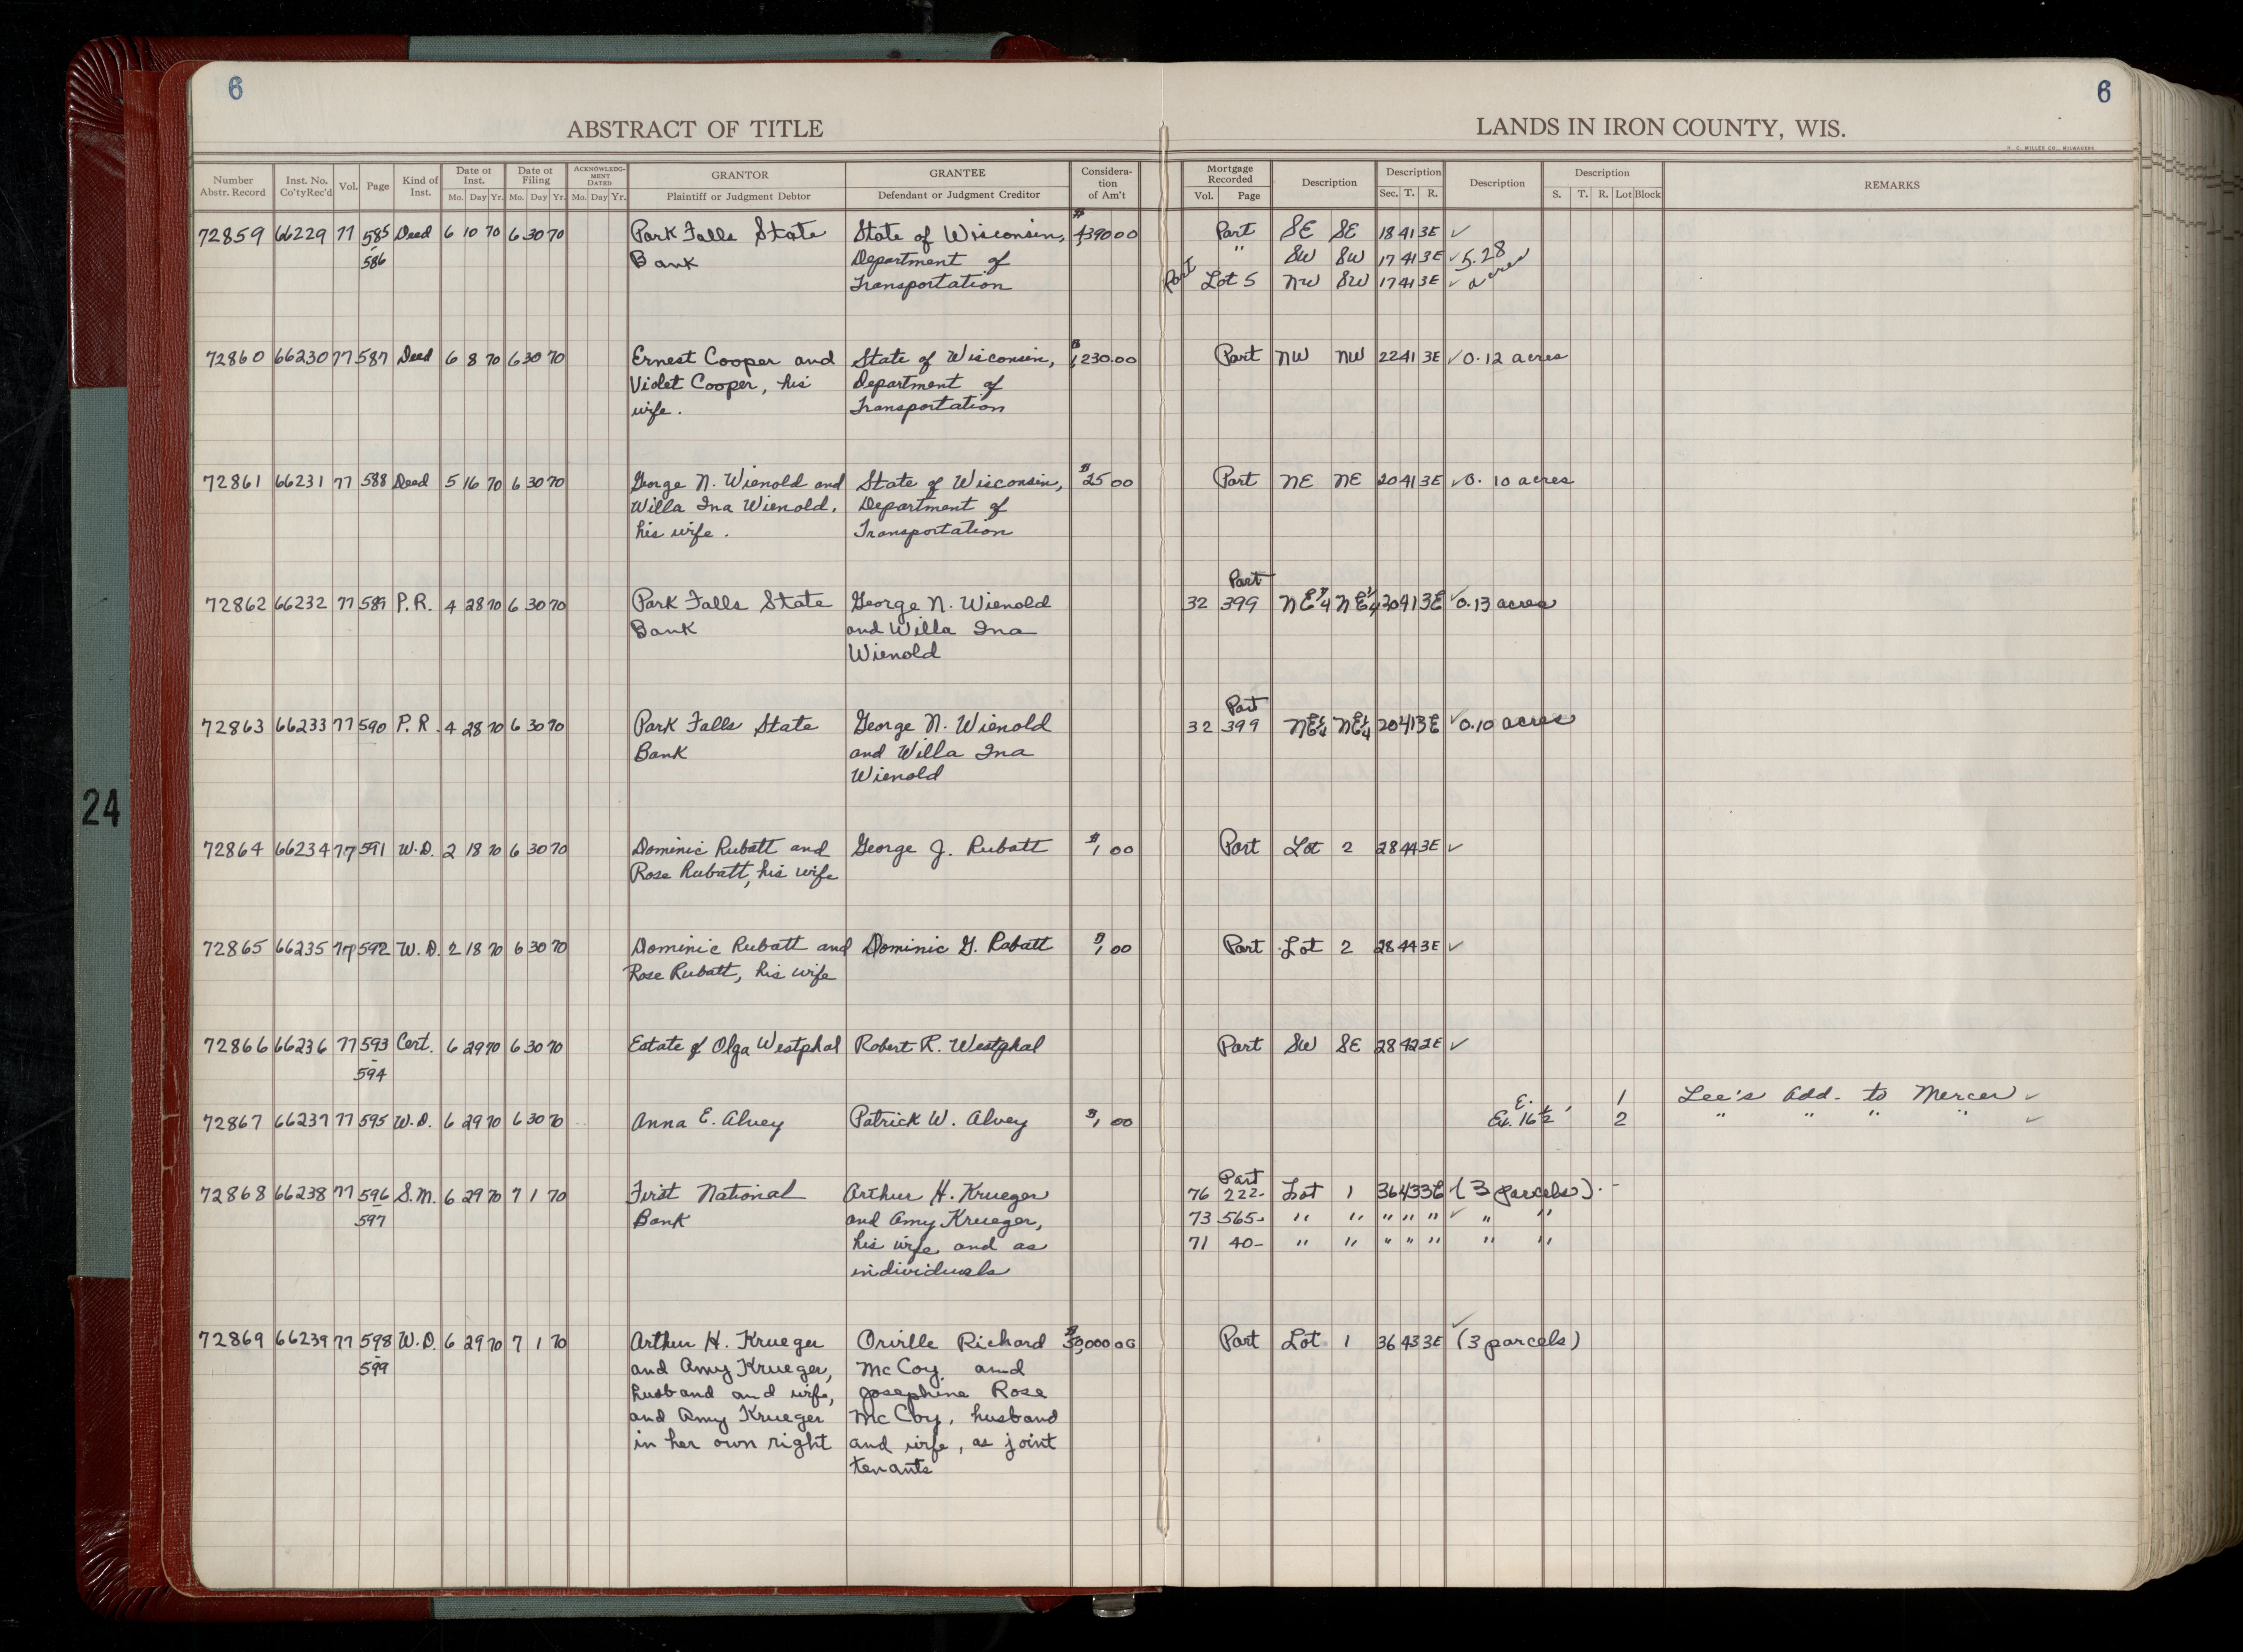 6
6
ABSTRACT OF TITLE
LANDS IN IRON COUNTY, WIS.
H. C. MILLER CO., MILWAUKEE
Number Abstr. Record | Inst. No. Co'tyRec'd | Vol. | Page | Kind of Inst. | Date of Inst. Mo. Day Yr. | Date of Filing Mo. Day Yr. | ACKNOWLEDGMENT DATED Mo. Day Yr. | GRANTOR Plaintiff or Judgment Debtor | GRANTEE Defendant or Judgment Creditor | Consideration of Am't | Mortgage Recorded Vol. Page | Description | Description Sec. T. R. | Description | Description S. T. R. Lot Block | REMARKS
72859 66229 77 585 Deed 6 10 70 6 30 70 Park Falls State State of Wisconsin, $4390 00 Part SE SE 18 41 3E ✓
586 Bank Department of " SW SW 17 41 3E ✓ 5.28
Transportation Part Lot 5 NW SW 17 41 3E ✓ acres
72860 66230 77 587 Deed 6 8 70 6 30 70 Ernest Cooper and State of Wisconsin, $1,230.00 Part NW NW 22 41 3E ✓ 0.12 acres
Violet Cooper, his Department of
wife. Transportation
72861 66231 77 588 Deed 5 16 70 6 30 70 George N. Wienold and State of Wisconsin, $25 00 Part NE NE 20 41 3E ✓ 0.10 acres
Willa Ina Wienold, Department of
his wife. Transportation
Part
72862 66232 77 589 P.R. 4 28 70 6 30 70 Park Falls State George N. Wienold 32 399 NE¼ NE¼ 20 41 3E ✓ 0.13 acres
Bank and Willa Ina
Wienold
Part
72863 66233 77 590 P.R. 4 28 70 6 30 70 Park Falls State George N. Wienold 32 399 NE¼ NE¼ 20 41 3E ✓ 0.10 acres
Bank and Willa Ina
Wienold
24
72864 66234 77 591 W.D. 2 18 70 6 30 70 Dominic Rubatt and George J. Rubatt $1 00 Part Lot 2 28 44 3E ✓
Rose Rubatt, his wife
72865 66235 77 592 W.D. 2 18 70 6 30 70 Dominic Rubatt and Dominic G. Rabatt $1 00 Part Lot 2 28 44 3E ✓
Rose Rubatt, his wife
72866 66236 77 593 Cert. 6 29 70 6 30 70 Estate of Olga Westphal Robert R. Westphal Part SW SE 28 42 2E ✓
594
E. 1 Lee's Add. to Mercer ✓
72867 66237 77 595 W.D. 6 29 70 6 30 70 Anna E. Alvey Patrick W. Alvey $1 00 Ex. 16½' 2 " " " " ✓
Part
72868 66238 77 596 S.M. 6 29 70 7 1 70 First National Arthur H. Krueger 76 222- Lot 1 36 43 3E (3 parcels).-
597 Bank and Amy Krueger, 73 565- " " " " " ✓ " "
his wife and as 71 40- " " " " " " "
individuals
72869 66239 77 598 W.D. 6 29 70 7 1 70 Arthur H. Krueger Orville Richard $30,000 00 Part Lot 1 36 43 3E ✓ (3 parcels)
599 and Amy Krueger, McCoy and
husband and wife, Josephine Rose
and Amy Krueger McCoy, husband
in her own right and wife, as joint
tenants